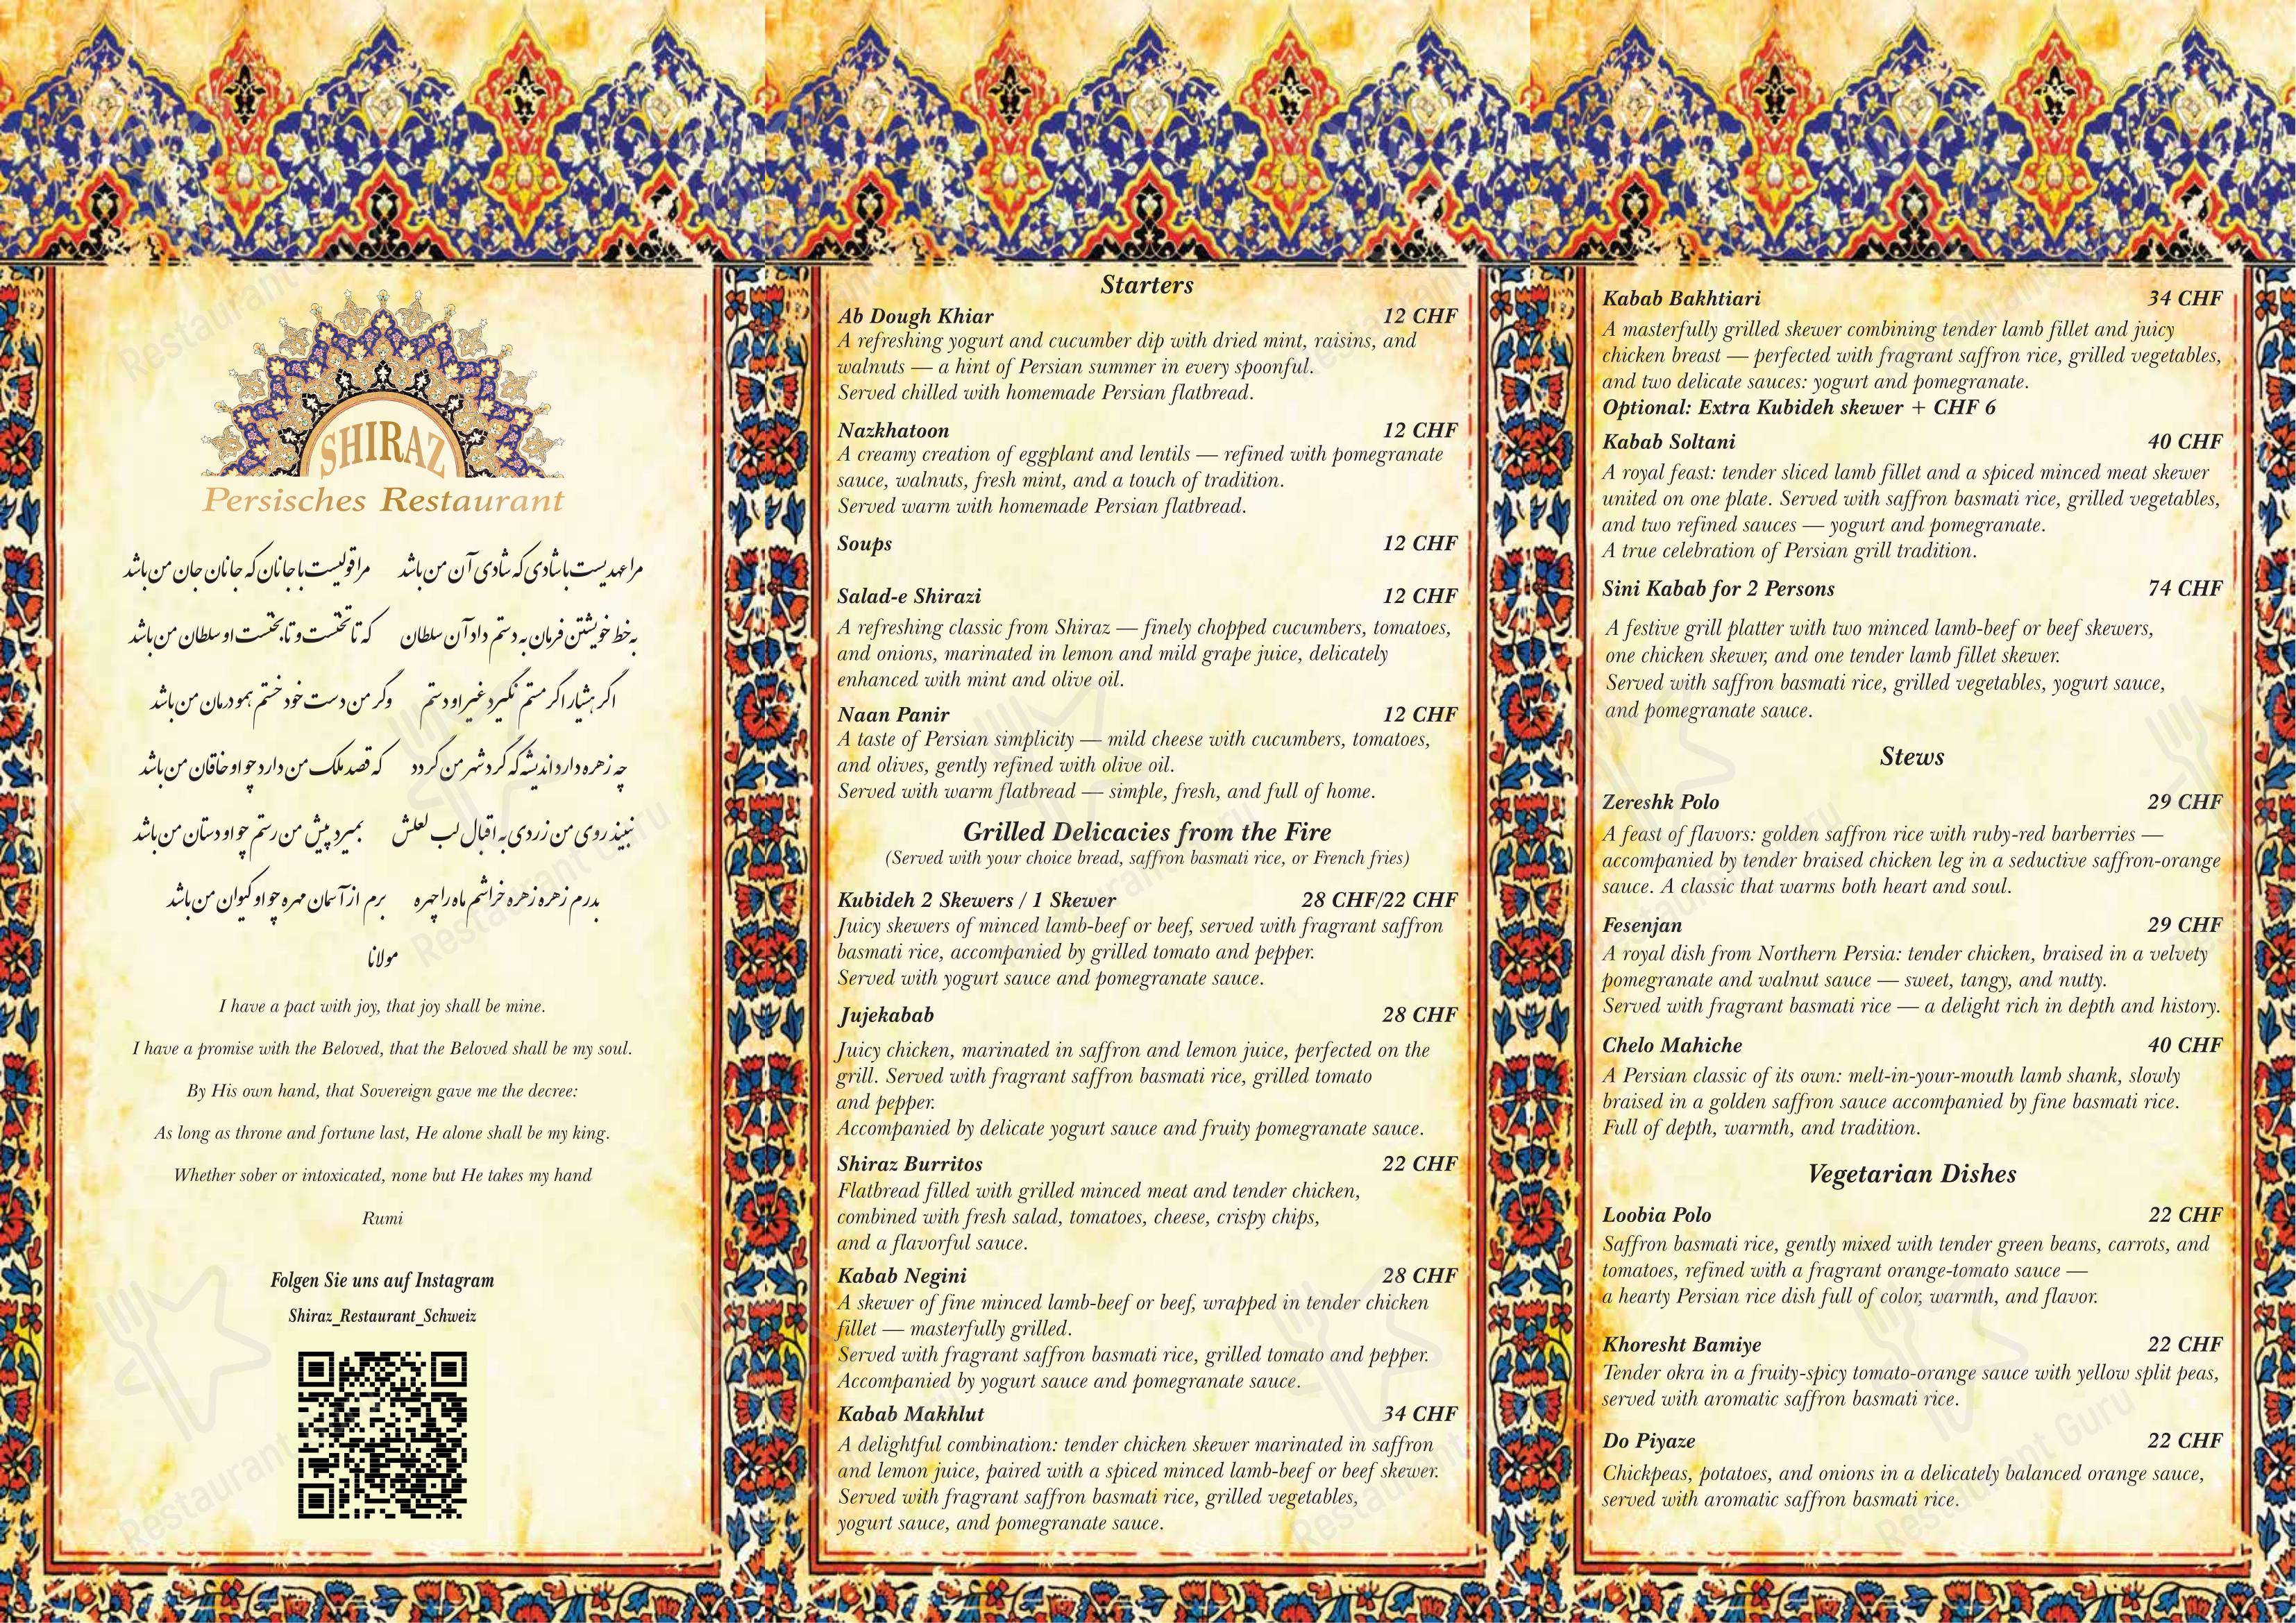 SHIRAZ
Persisches Restaurant
مرا عهدیست با شادی که شادی آن من باشد    مرا قولیست با جانان که جانان جان من باشد
به خط خویشتن فرمان به دستم داد آن سلطان    که تا تختست و تا بختست او سلطان من باشد
اگر هشیار اگر مستم نگیرد غیر او دستم    وگر من دست خود خستم همو درمان من باشد
چه زهره دارد اندیشه که گرد شهر من گردد    که قصد ملک من دارد چو او خاقان من باشد
نبیند روی من زردی به اقبال لب لعلش    بمیرد پیش من رستم چو او دستان من باشد
بدرم زهره زهره خراشم ماه را چهره    برم از آسمان مهره چو او کیوان من باشد
مولانا
I have a pact with joy, that joy shall be mine.
I have a promise with the Beloved, that the Beloved shall be my soul.
By His own hand, that Sovereign gave me the decree:
As long as throne and fortune last, He alone shall be my king.
Whether sober or intoxicated, none but He takes my hand
Rumi
Folgen Sie uns auf Instagram
Shiraz_Restaurant_Schweiz
Starters
Ab Dough Khiar 12 CHF
A refreshing yogurt and cucumber dip with dried mint, raisins, and
walnuts — a hint of Persian summer in every spoonful.
Served chilled with homemade Persian flatbread.
Nazkhatoon 12 CHF
A creamy creation of eggplant and lentils — refined with pomegranate
sauce, walnuts, fresh mint, and a touch of tradition.
Served warm with homemade Persian flatbread.
Soups 12 CHF
Salad-e Shirazi 12 CHF
A refreshing classic from Shiraz — finely chopped cucumbers, tomatoes,
and onions, marinated in lemon and mild grape juice, delicately
enhanced with mint and olive oil.
Naan Panir 12 CHF
A taste of Persian simplicity — mild cheese with cucumbers, tomatoes,
and olives, gently refined with olive oil.
Served with warm flatbread — simple, fresh, and full of home.
Grilled Delicacies from the Fire
(Served with your choice bread, saffron basmati rice, or French fries)
Kubideh 2 Skewers / 1 Skewer 28 CHF/22 CHF
Juicy skewers of minced lamb-beef or beef, served with fragrant saffron
basmati rice, accompanied by grilled tomato and pepper.
Served with yogurt sauce and pomegranate sauce.
Jujekabab 28 CHF
Juicy chicken, marinated in saffron and lemon juice, perfected on the
grill. Served with fragrant saffron basmati rice, grilled tomato
and pepper.
Accompanied by delicate yogurt sauce and fruity pomegranate sauce.
Shiraz Burritos 22 CHF
Flatbread filled with grilled minced meat and tender chicken,
combined with fresh salad, tomatoes, cheese, crispy chips,
and a flavorful sauce.
Kabab Negini 28 CHF
A skewer of fine minced lamb-beef or beef, wrapped in tender chicken
fillet — masterfully grilled.
Served with fragrant saffron basmati rice, grilled tomato and pepper.
Accompanied by yogurt sauce and pomegranate sauce.
Kabab Makhlut 34 CHF
A delightful combination: tender chicken skewer marinated in saffron
and lemon juice, paired with a spiced minced lamb-beef or beef skewer.
Served with fragrant saffron basmati rice, grilled vegetables,
yogurt sauce, and pomegranate sauce.
Kabab Bakhtiari 34 CHF
A masterfully grilled skewer combining tender lamb fillet and juicy
chicken breast — perfected with fragrant saffron rice, grilled vegetables,
and two delicate sauces: yogurt and pomegranate.
Optional: Extra Kubideh skewer + CHF 6
Kabab Soltani 40 CHF
A royal feast: tender sliced lamb fillet and a spiced minced meat skewer
united on one plate. Served with saffron basmati rice, grilled vegetables,
and two refined sauces — yogurt and pomegranate.
A true celebration of Persian grill tradition.
Sini Kabab for 2 Persons 74 CHF
A festive grill platter with two minced lamb-beef or beef skewers,
one chicken skewer, and one tender lamb fillet skewer.
Served with saffron basmati rice, grilled vegetables, yogurt sauce,
and pomegranate sauce.
Stews
Zereshk Polo 29 CHF
A feast of flavors: golden saffron rice with ruby-red barberries —
accompanied by tender braised chicken leg in a seductive saffron-orange
sauce. A classic that warms both heart and soul.
Fesenjan 29 CHF
A royal dish from Northern Persia: tender chicken, braised in a velvety
pomegranate and walnut sauce — sweet, tangy, and nutty.
Served with fragrant basmati rice — a delight rich in depth and history.
Chelo Mahiche 40 CHF
A Persian classic of its own: melt-in-your-mouth lamb shank, slowly
braised in a golden saffron sauce accompanied by fine basmati rice.
Full of depth, warmth, and tradition.
Vegetarian Dishes
Loobia Polo 22 CHF
Saffron basmati rice, gently mixed with tender green beans, carrots, and
tomatoes, refined with a fragrant orange-tomato sauce —
a hearty Persian rice dish full of color, warmth, and flavor.
Khoresht Bamiye 22 CHF
Tender okra in a fruity-spicy tomato-orange sauce with yellow split peas,
served with aromatic saffron basmati rice.
Do Piyaze 22 CHF
Chickpeas, potatoes, and onions in a delicately balanced orange sauce,
served with aromatic saffron basmati rice.
Restaurant Guru